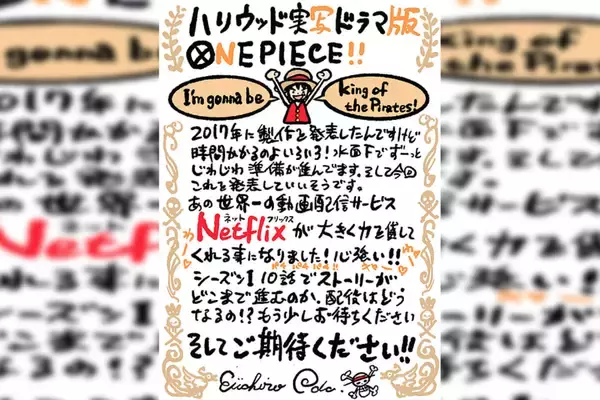 ハリウッド実写ドラマ版
ONE PIECE!!
I'm gonna be
King of
the Pirates!
2017年に製作を発表したんですけど
時間かかるのよいろいろ!水面下でずーっと
じわじわ準備が進んでます。そして今回
これを発表していいそうです。
あの世界一の動画配信サービス
ネットフリックス
Netflixが大きく力を貸して
くれる事になりました!心強い!!
パチパチパチ!!
シーズン1 10話でストーリーが
どこまで進むのか、配役はどう
なるの!?もう少しお待ちください
そしてご期待ください!!
Eiichiro Oda.